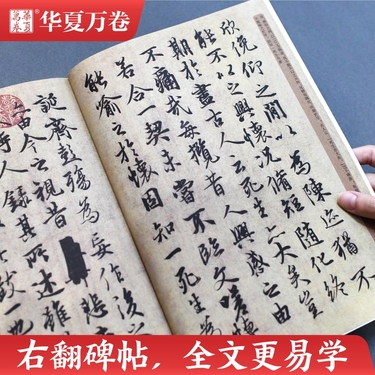 華夏萬卷
华夏万卷
欣俛仰之間以為陳迹猶不
能不以之興懷況脩短随化終
期於盡古人云死生亦大矣豈
不痛哉每攬昔人興感之由
若合一契未嘗不臨文嗟悼
能喻之於懷固知一死生為
誕齊彭殤為妄作後之
由今之視昔悲
時人録其所述雖
致一也
右翻碑帖，全文更易学